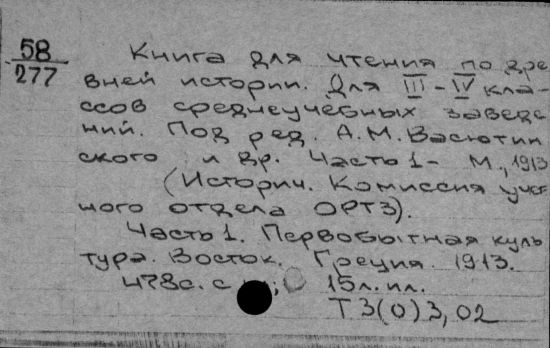 58
277
Книга для чтения по дре
вней истории. Для III-IV кла-
ссов среднеучебных заведе
ний. Под ред. А.М.Васютин
ского и др. Часть 1- М., 1913
(Историч. Комиссия учеб
ного отдела ОРТЗ).
Часть 1. Первобытная куль
тура. Восток. Греция. 1913.
478с. с ; 15л.ил.
Т3(0)3,02